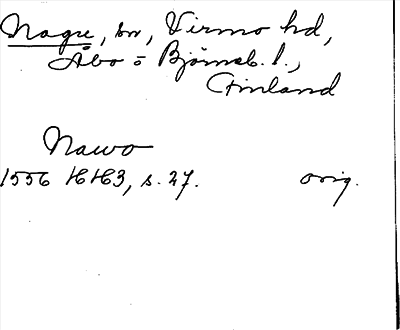 Nagu, sn, Virmo hd,
Åbo o Björneb. l.,
Finland
Nawo
1556 HH3, s. 27. orig.